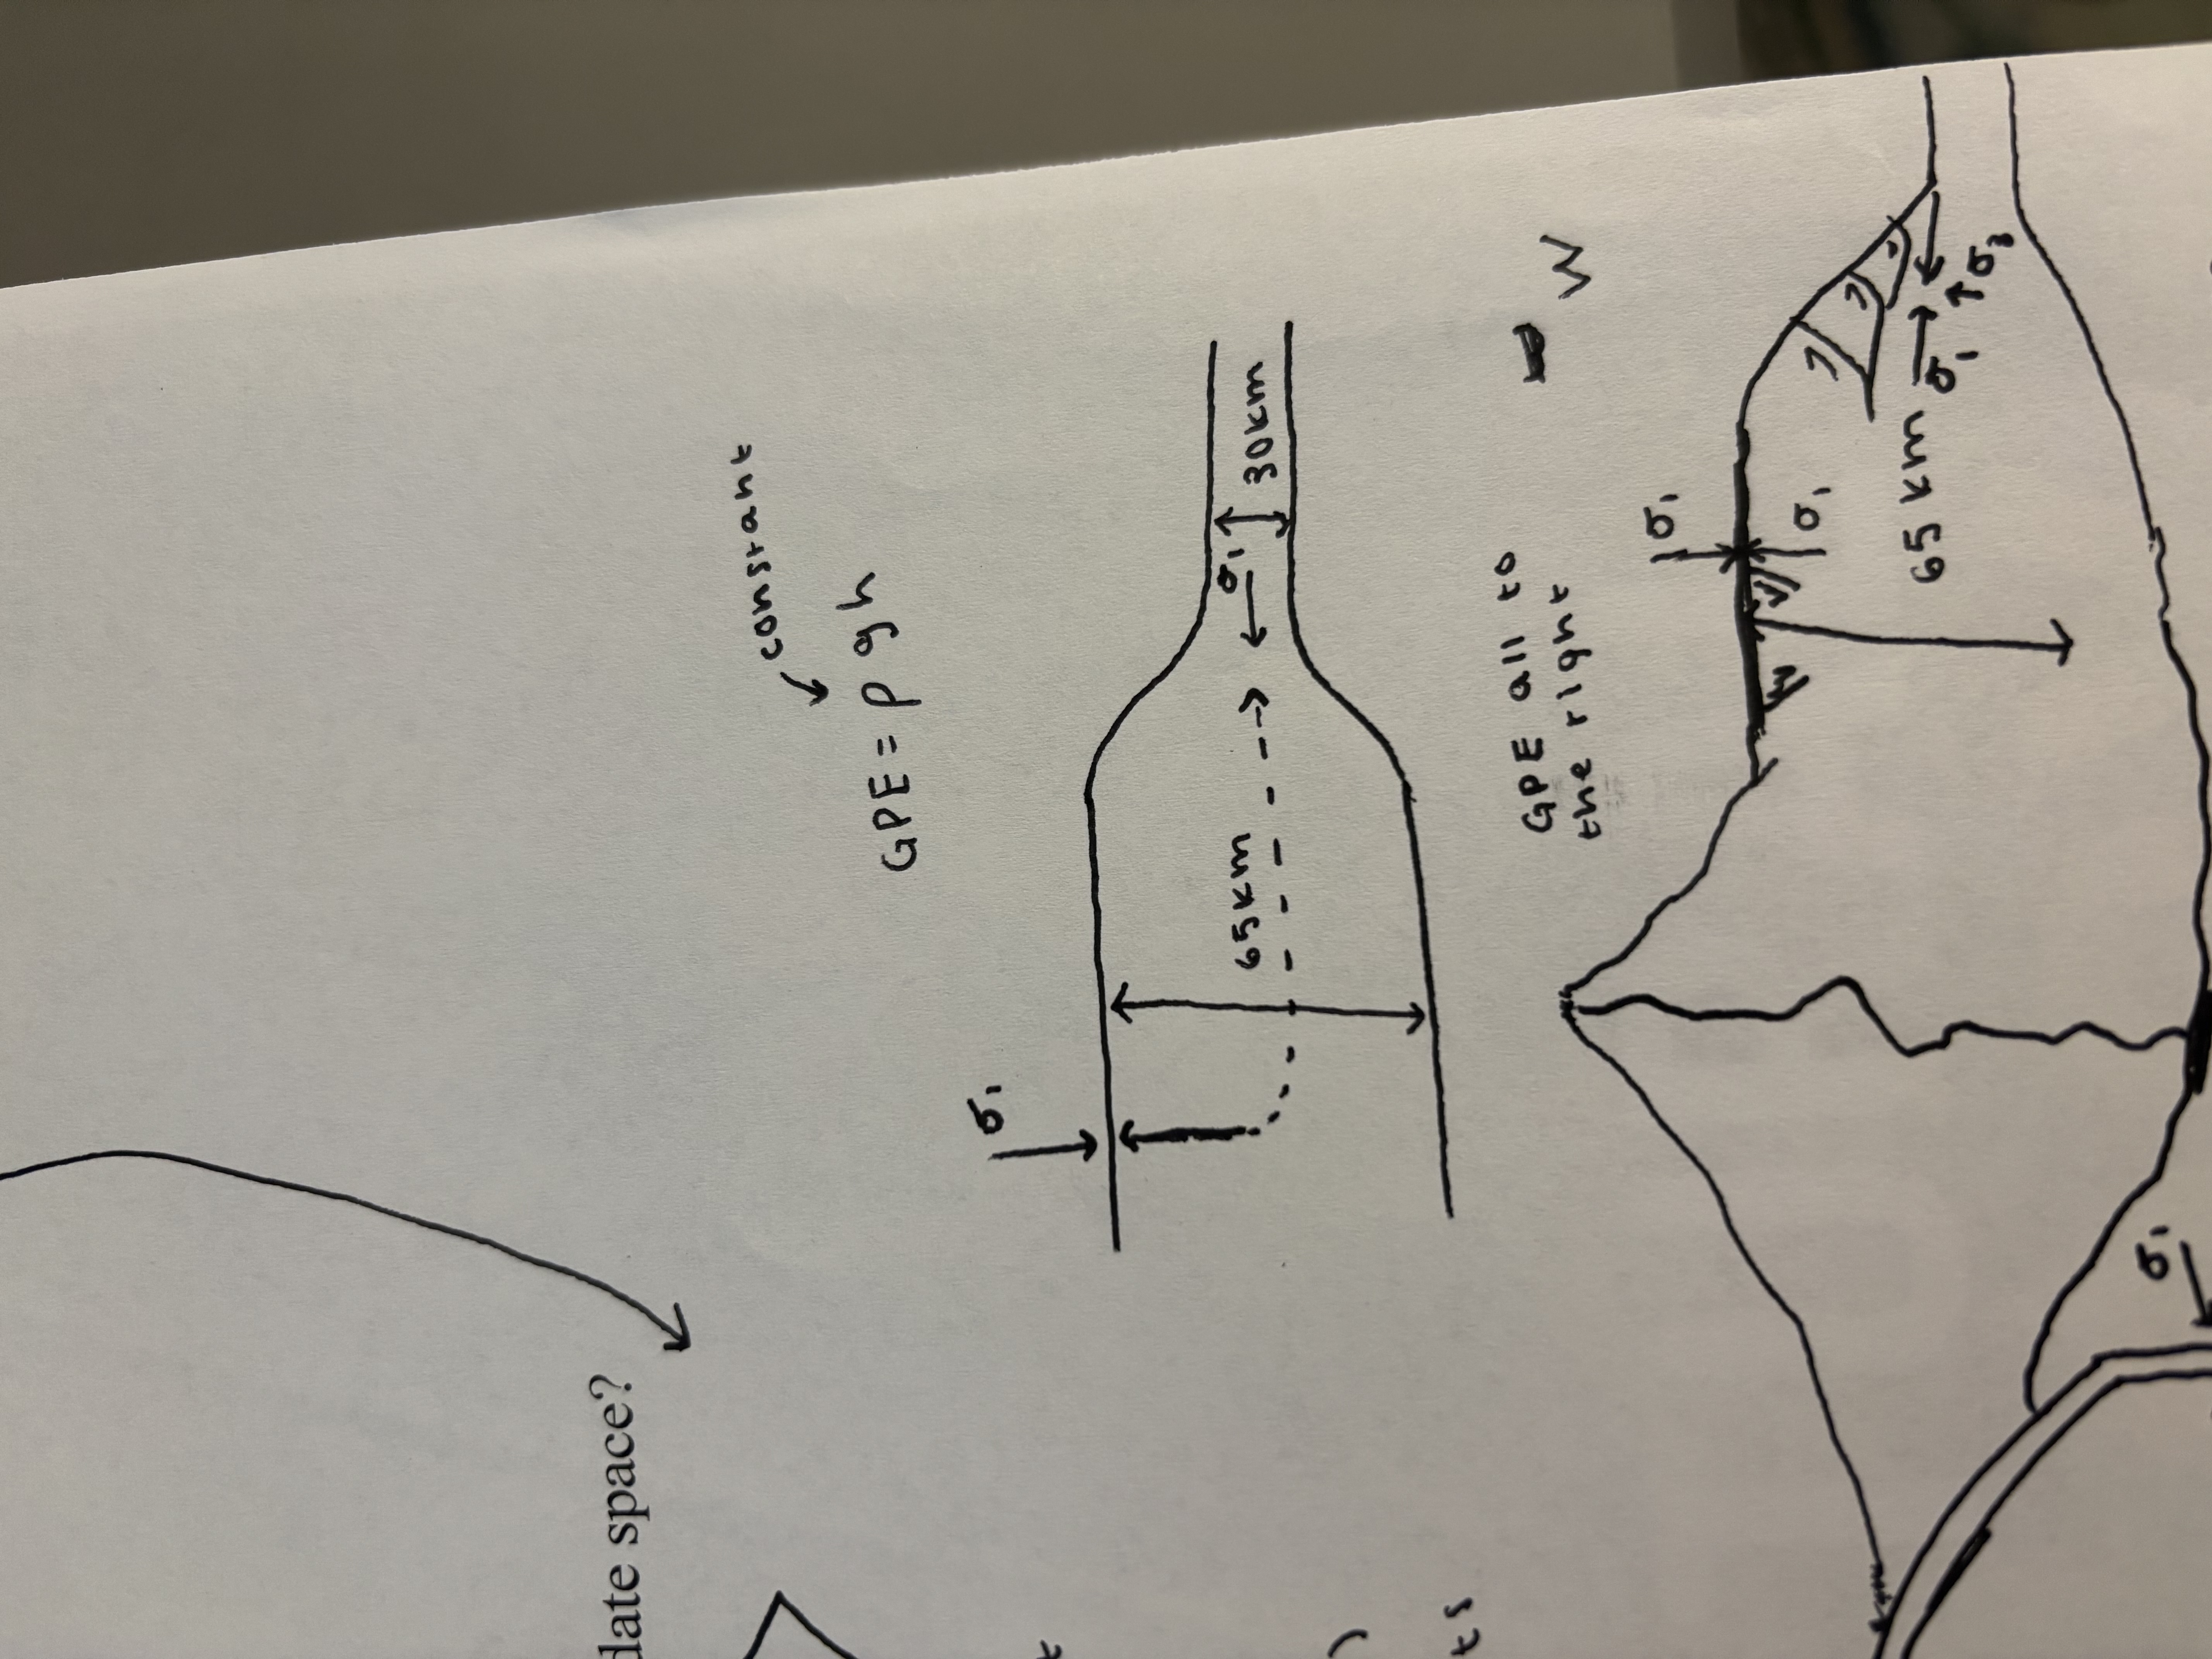 date space?
constant
GPE = ρgh
σ1
65km
σ1
30km
GPE all to
the right
W
σ1
σ1
65 km
σ1
σ3
σ1
ts